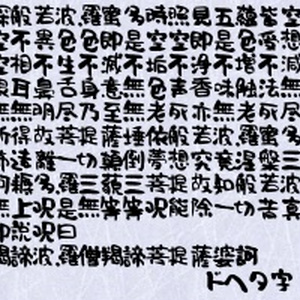 深般若波.羅蜜多時照見五蘊皆空
空不異色色即是空空即是色受想
空相不生不滅不垢不浄不増不減
眼耳鼻舌身意無色声香味触法無
無無明尽乃至無老死亦無老死尽
所得故菩提薩埵依般若波.羅蜜多
怖遠離一切顛倒夢想究竟涅槃三
阿耨多.羅三藐三菩提故知般若波
無上呪是無等等呪能除一切苦真
即説呪曰
羯諦波.羅僧羯諦菩提薩婆訶
ドヘタ字